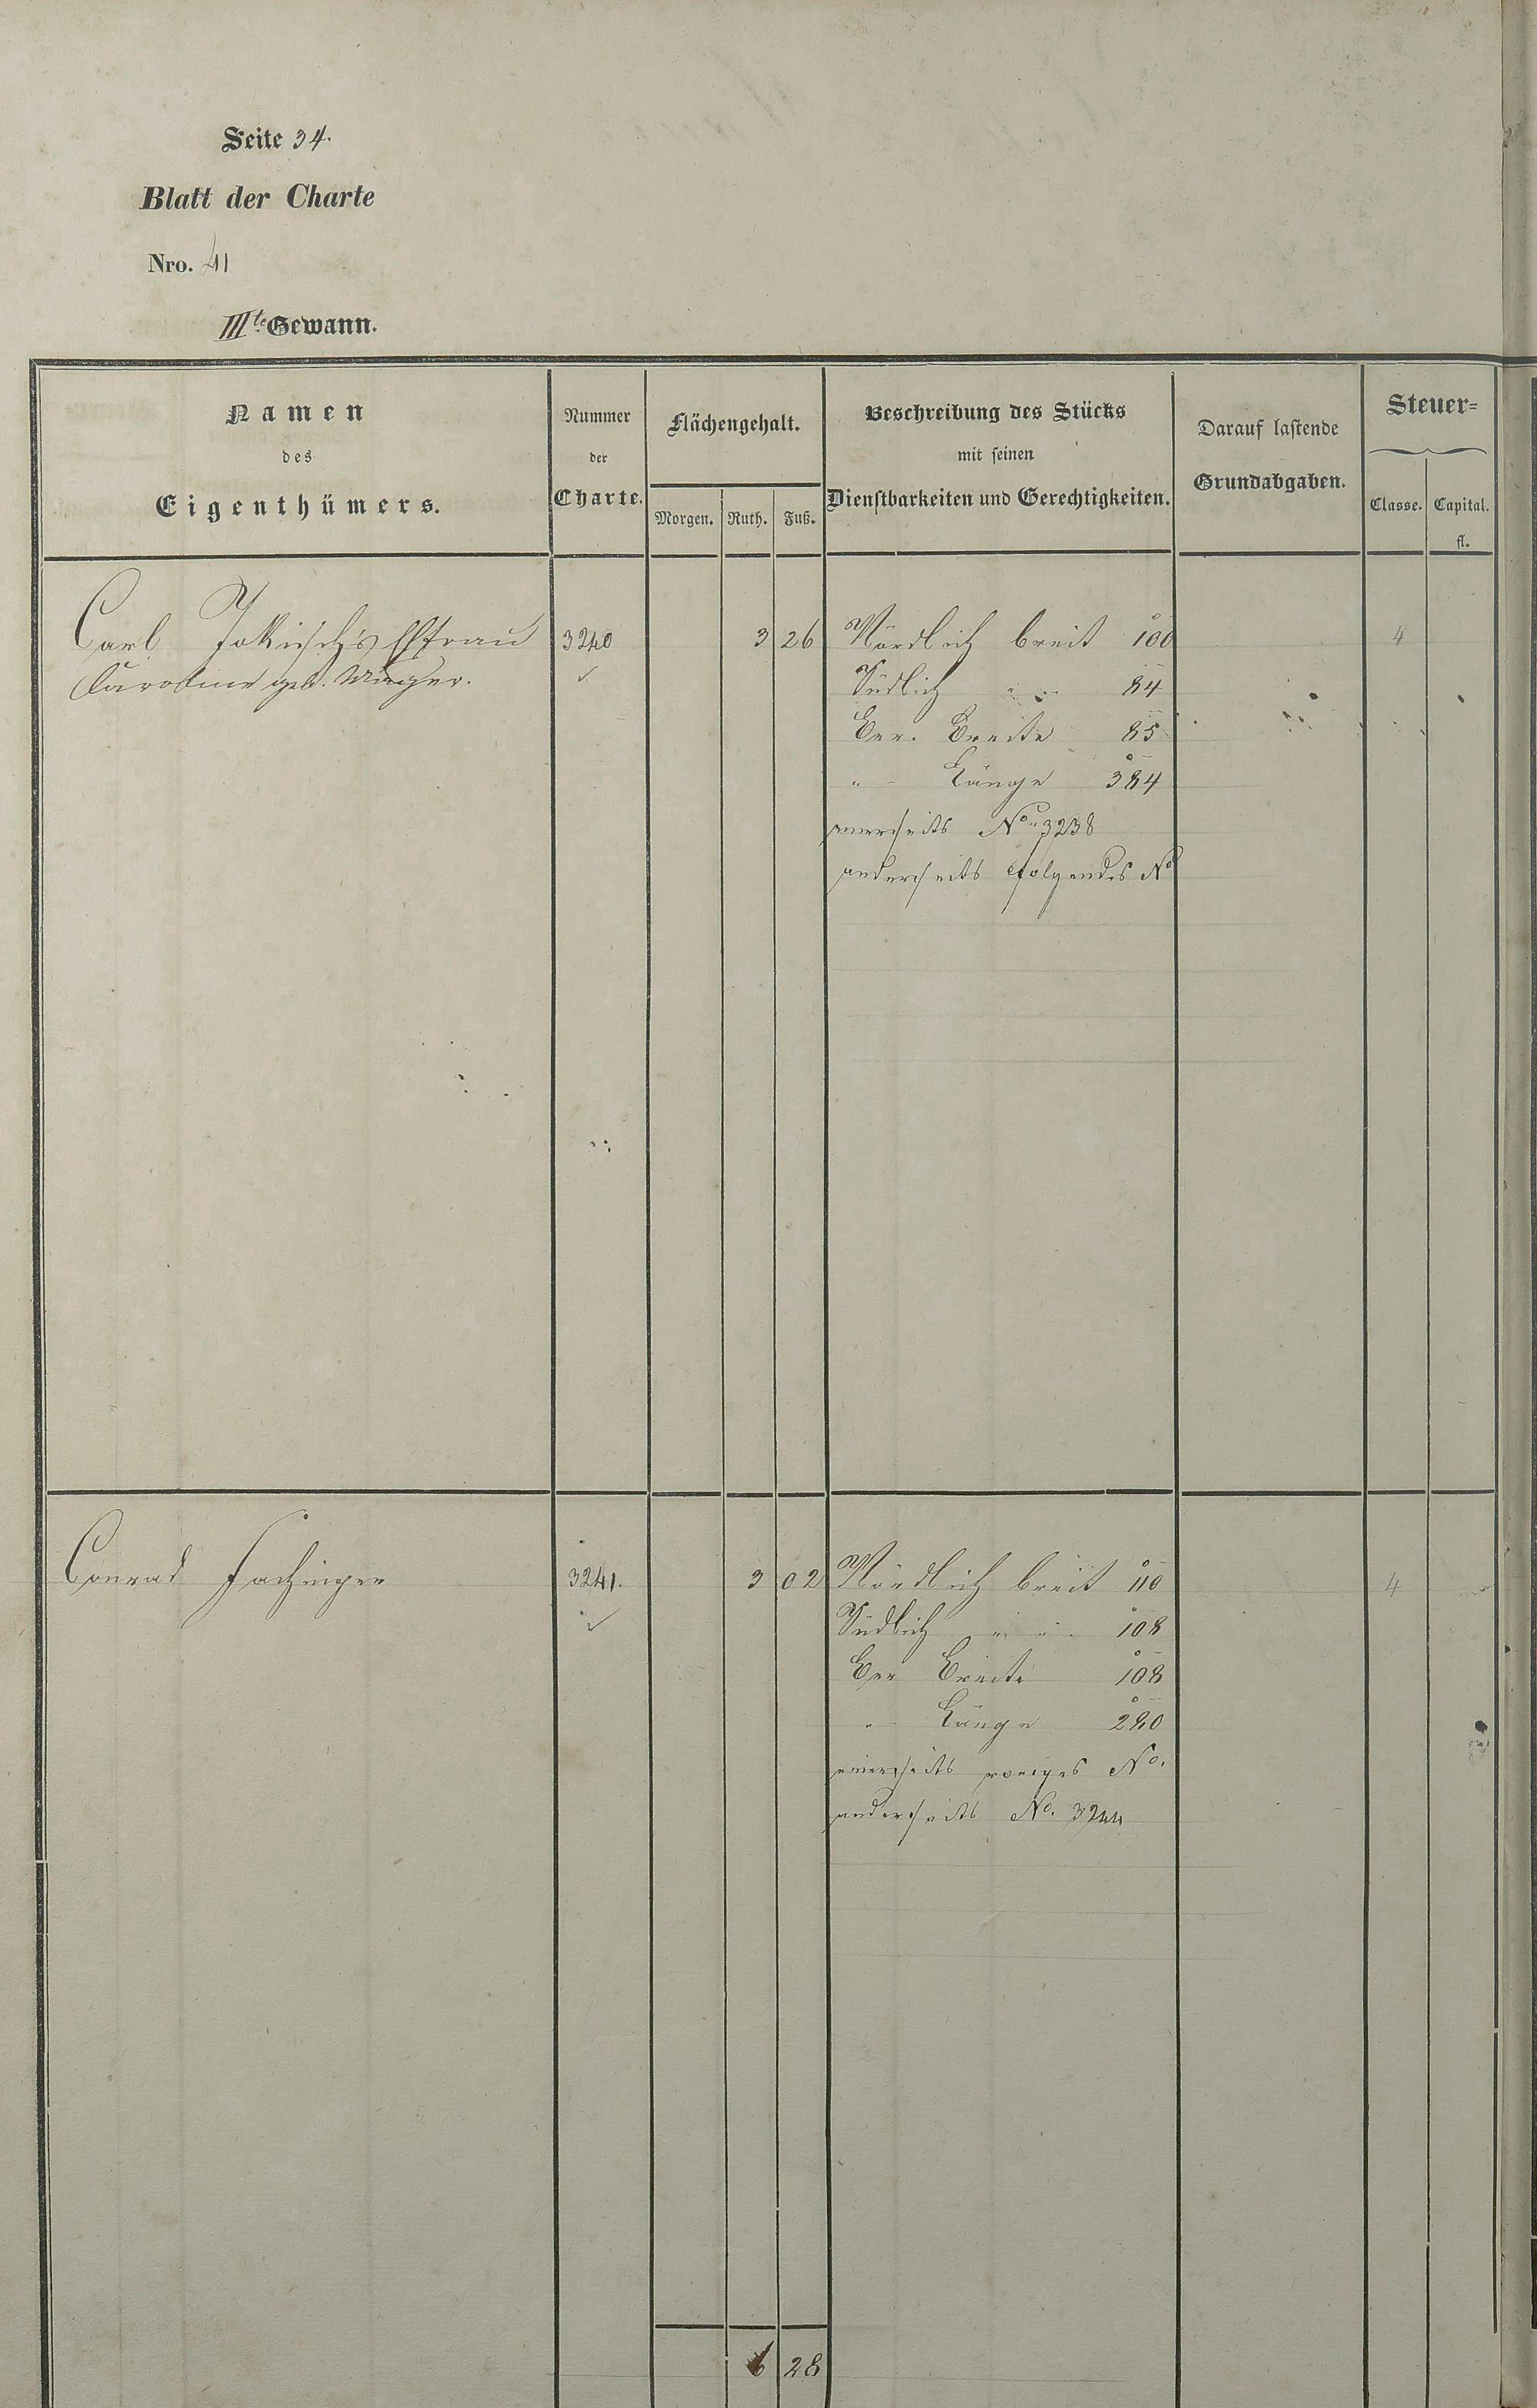 Seite 34.
Blatt der Charte
Nro. 41
IIIte Gewann.
Namen
des
Eigenthümers.
Nummer
der
Charte.
Flächengehalt.
Morgen. Ruth. Fuß.
Beschreibung des Stücks
mit seinen
Dienstbarkeiten und Gerechtigkeiten.
Darauf lastende
Grundabgaben.
Steuer=
Classe. Capital.
fl.
Carl Ehfrau 3240 3 26 Nördlich breit 100 4
Caroline geb. ✓ Südlich " " 84
Ger. Breite 85
" Länge 384
einerseits No. 3238
anderseits folgendes No
Conrad Fachinger 3241. 3 02 Nördlich breit 110 4
✓ Südlich " " 108
Ger Breite 108
" Länge 280
einerseits voriges No.
anderseits No. 3244
6 28